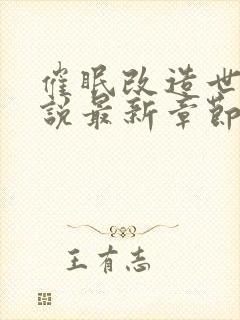 催眠改造世
說最新章節
王有志